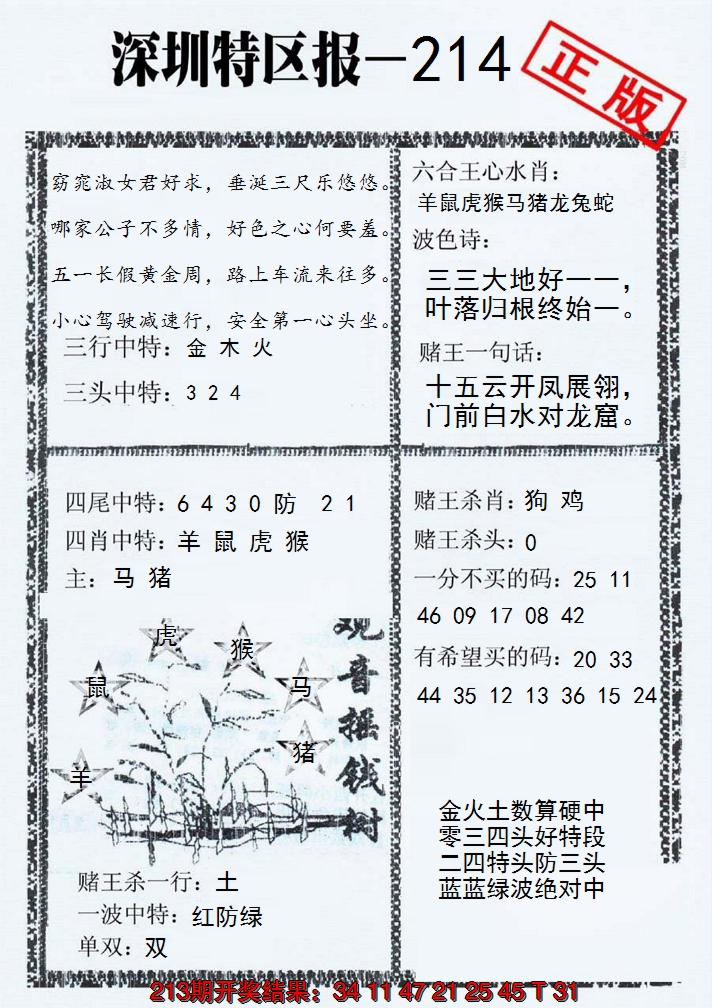 深圳特区报-214
正版
窈窕淑女君好求，垂涎三尺乐悠悠。
哪家公子不多情，好色之心何要羞。
五一长假黄金周，路上车流来往多。
小心驾驶减速行，安全第一心头坐。
三行中特：金 木 火
三头中特：3 2 4
六合王心水肖：
羊鼠虎猴马猪龙兔蛇
波色诗：
三三大地好一一，
叶落归根终始一。
赌王一句话：
十五云开凤展翎，
门前白水对龙窟。
四尾中特：6 4 3 0 防 2 1
四肖中特：羊 鼠 虎 猴
主：马 猪
虎
猴
鼠
马
猪
羊
观音摇钱树
赌王杀一行：土
一波中特：红防绿
单双：双
赌王杀肖：狗 鸡
赌王杀头：0
一分不买的码：25 11
46 09 17 08 42
有希望买的码：20 33
44 35 12 13 36 15 24
金火土数算硬中
零三四头好特段
二四特头防三头
蓝蓝绿波绝对中
213期开奖结果：34 11 47 21 25 45 T 31